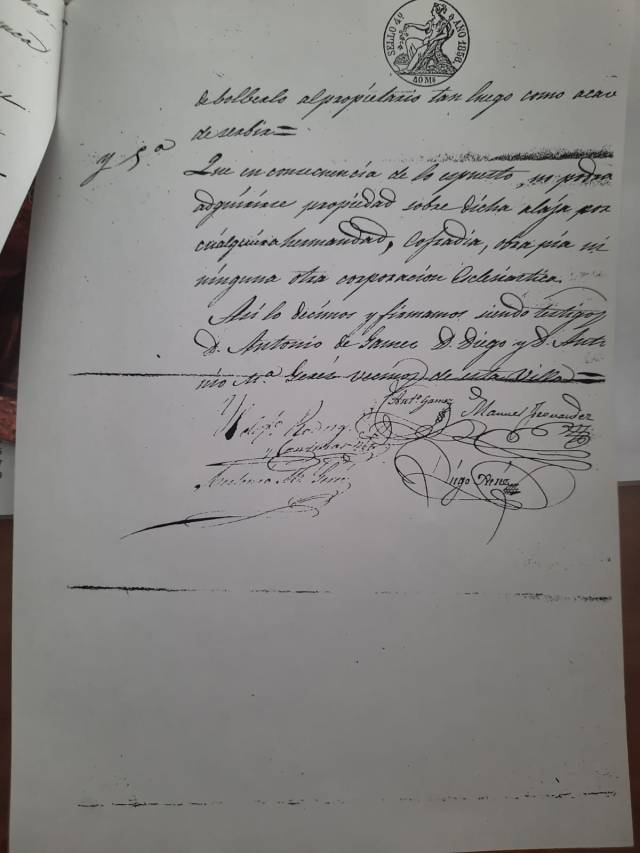 SELLO 4º AÑO 1856.
40 Ms
debolberlo al propietario tan luego como acav
de serbir=
y 5ª
Que en consecuencia de lo espuesto, no podra
adquirirse propiedad sobre dicha alaja por
cualquiera hermandad, Cofradia, obra pia ni
ninguna otra corporacion Eclesiastica.
Asi lo decimos y firmamos siendo testigos
D. Antonio de Gamez D. Diego y D. Anto
nio Mª Gerez vecinos de esta Villa=
Antº Gamez
Manuel Fernandez
Rodrig
y
Diego